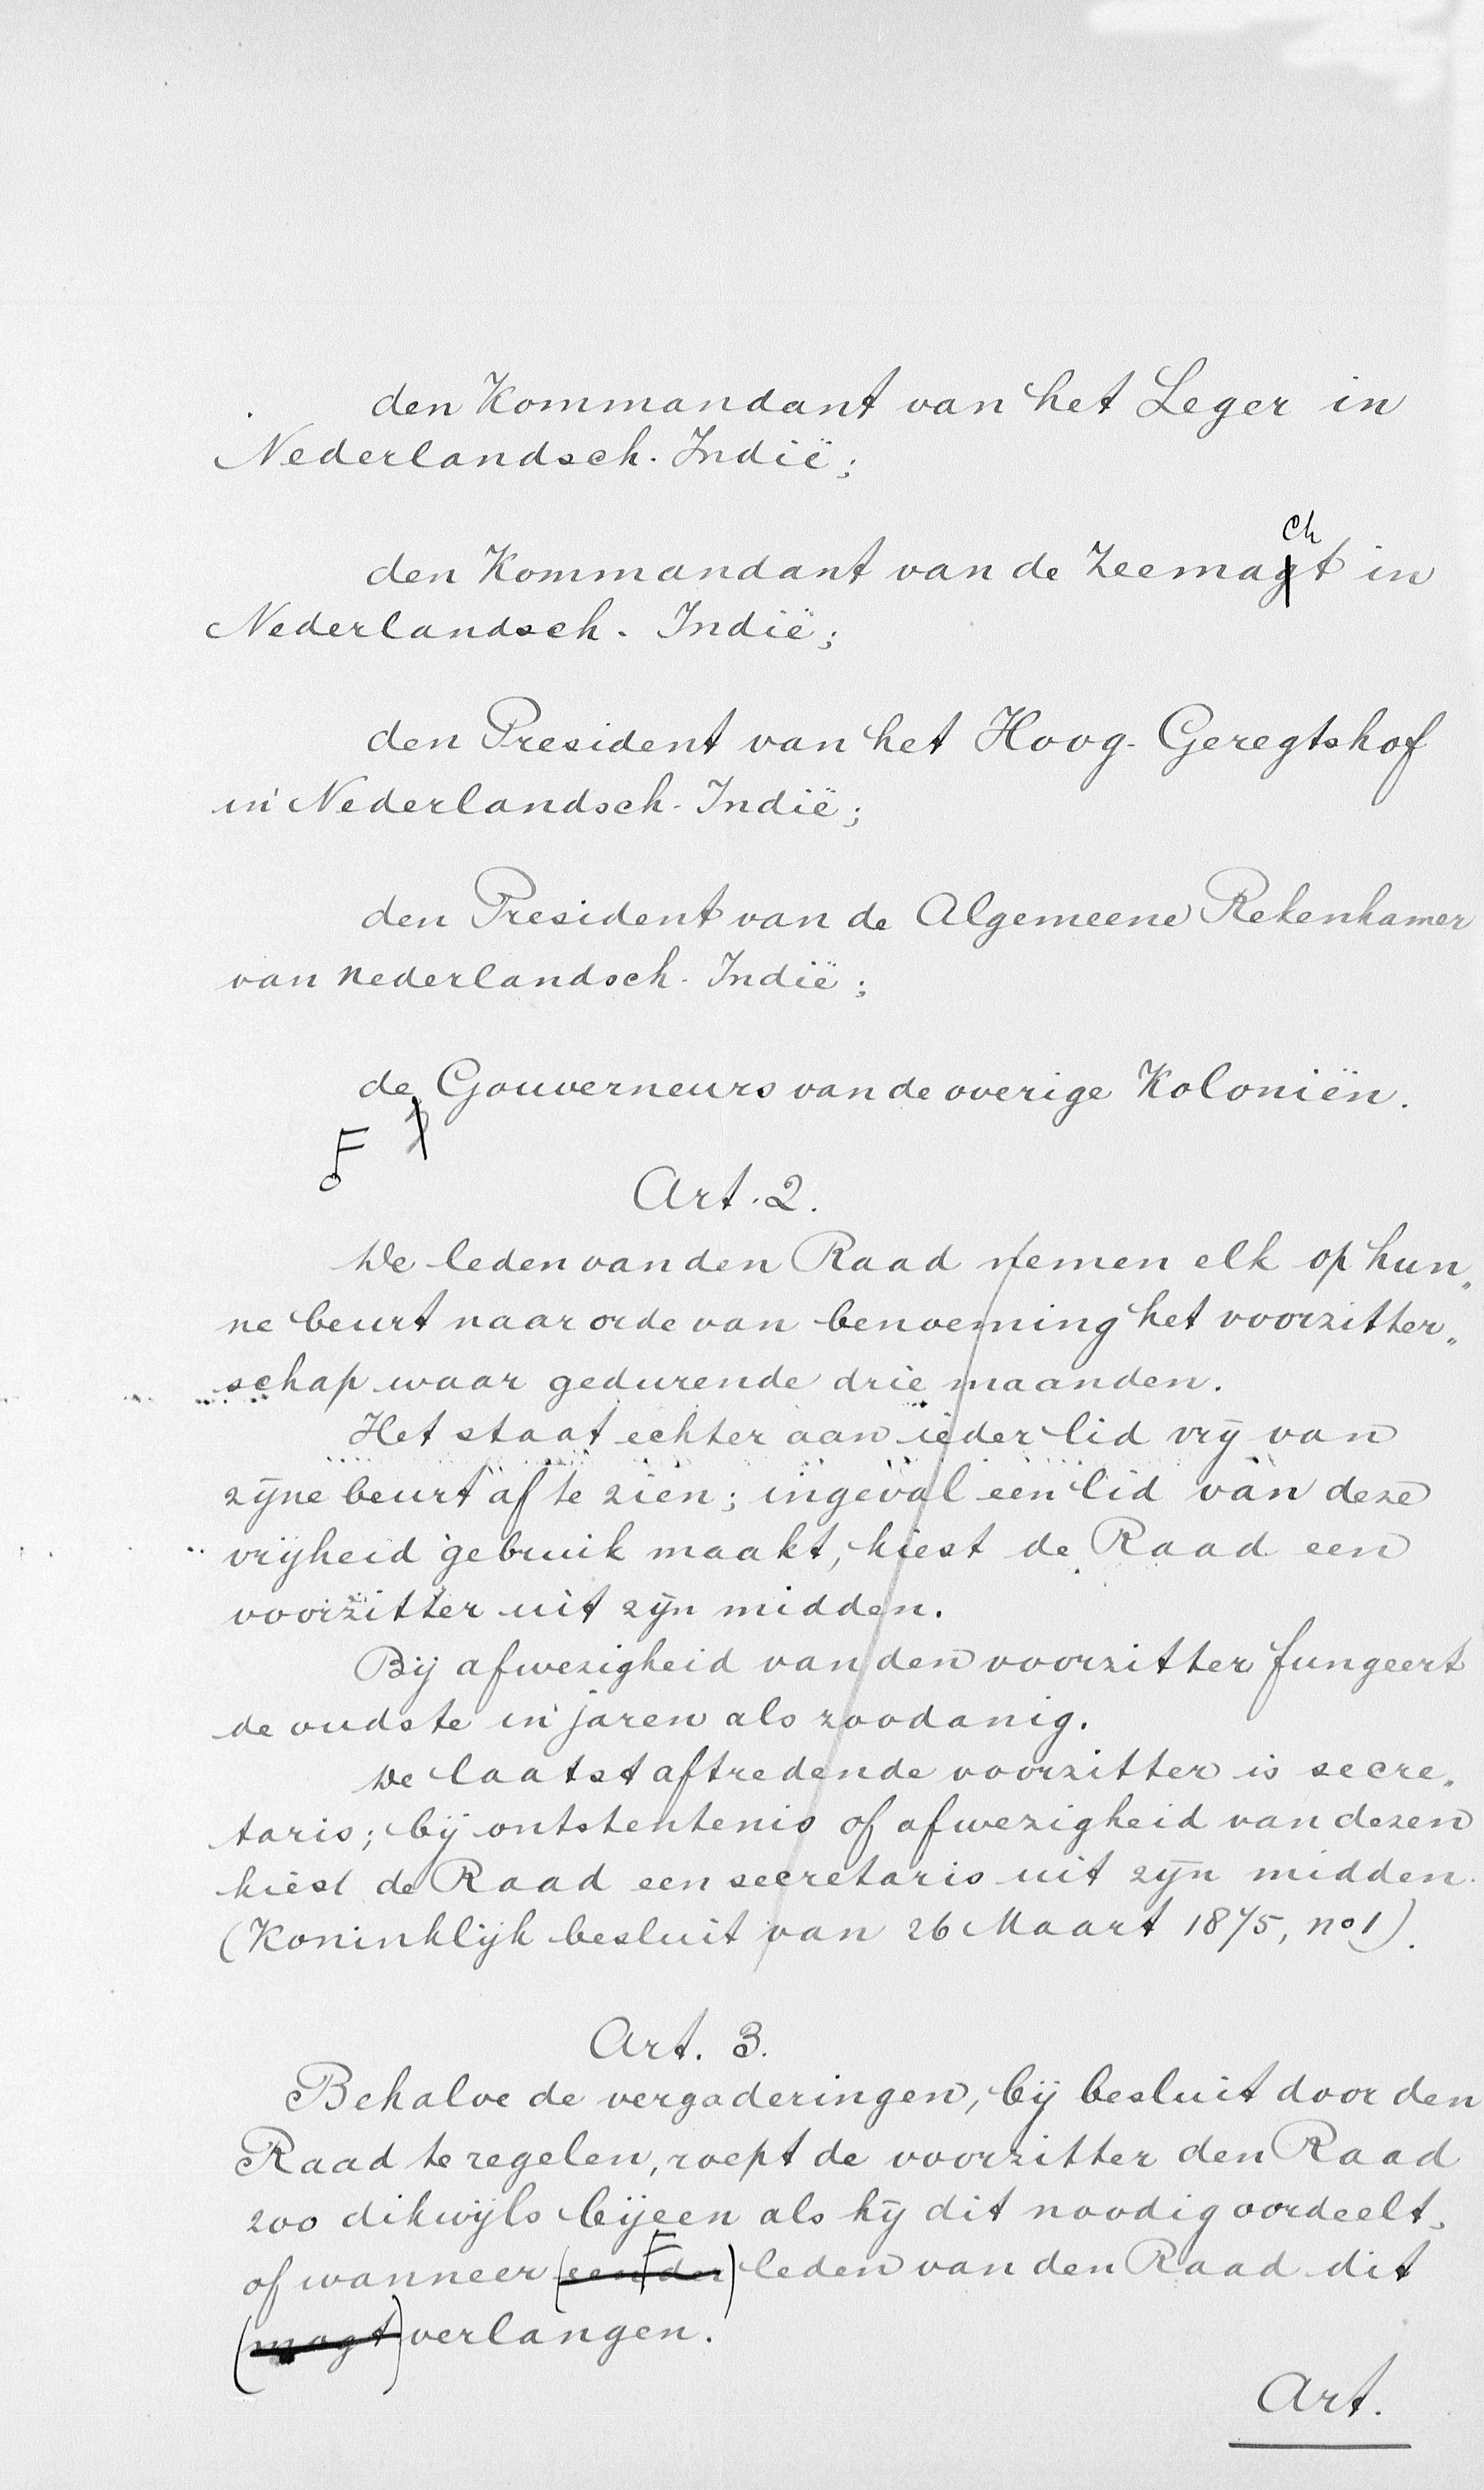 den Kommandant van het Leger in
Nederlandsch-Indië;
ch
den Kommandant van de Zeemagt in
Nederlandsch-Indië;
den President van het Hoog-Geregtshof
in Nederlandsch-Indië;
den President van de Algemeene Rekenkamer
van Nederlandsch-Indië;
de Gouverneurs van de overige Koloniën.
F
Art. 2.
De leden van den Raad nemen elk op hun„
ne beurt naar orde van benoeming het voorzitter„
schap waar gedurende drie maanden.
Het staat echter aan ieder lid vrij van
zijne beurt af te zien; ingeval een lid van deze
vrijheid gebruik maakt, kiest de Raad een
voorzitter uit zijn midden.
Bij afwezigheid van den voorzitter fungeert
de oudste in jaren als zoodanig.
De laatst aftredende voorzitter is secre„
taris; bij ontstentenis of afwezigheid van dezen
kiest de Raad een secretaris uit zijn midden.
(Koninklijk besluit van 26 Maart 1875, no 1).
Art. 3.
Behalve de vergaderingen, bij besluit door den
Raad te regelen, roept de voorzitter den Raad
zoo dikwijls bijeen als hij dit noodig oordeelt,
F
of wanneer (een der) leden van den Raad dit
(mogt) verlangen.
Art.